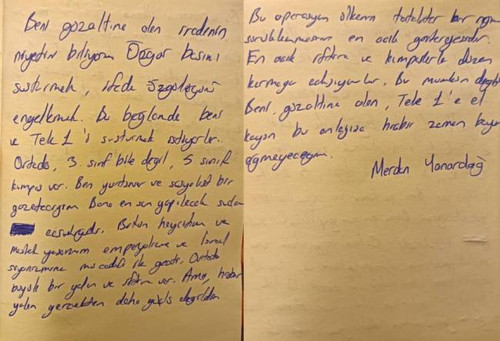 Beni gözaltına alan iradenin
niyetini biliyorum Özgür basını
susturmak, ifade özgürlüğünü
engellemek. Bu bağlamda beni
ve Tele 1'i susturmak istiyorlar.
Ortada, 3. sınıf bile değil, 5 sınıf
kumpas var. Ben yurtsever ve sosyalist bir
gazeteciyim Bana en son yapılacak suçlama
casusluktur. Bütün hayatım ve
meslek yaşamım emperyalizme ve İsrail
siyonizmine mücadele ile geçti. Ortada
büyük bir yalan ve iftira var. Ama, hiçbir
yalan gerçekten daha güçlü değildir.
Bu operasyon ülkenin totaliter bir rejime
sürüklenmesinin en açık göstergesidir.
En açık iftira ve kumpaslarla düzen
kurmaya çalışıyorlar. Bu mümkün değildir
Beni gözaltına alan, Tele 1'e el
koyan bu anlayışa hiçbir zaman boyun
eğmeyeceğim.
Merdan Yanardağ